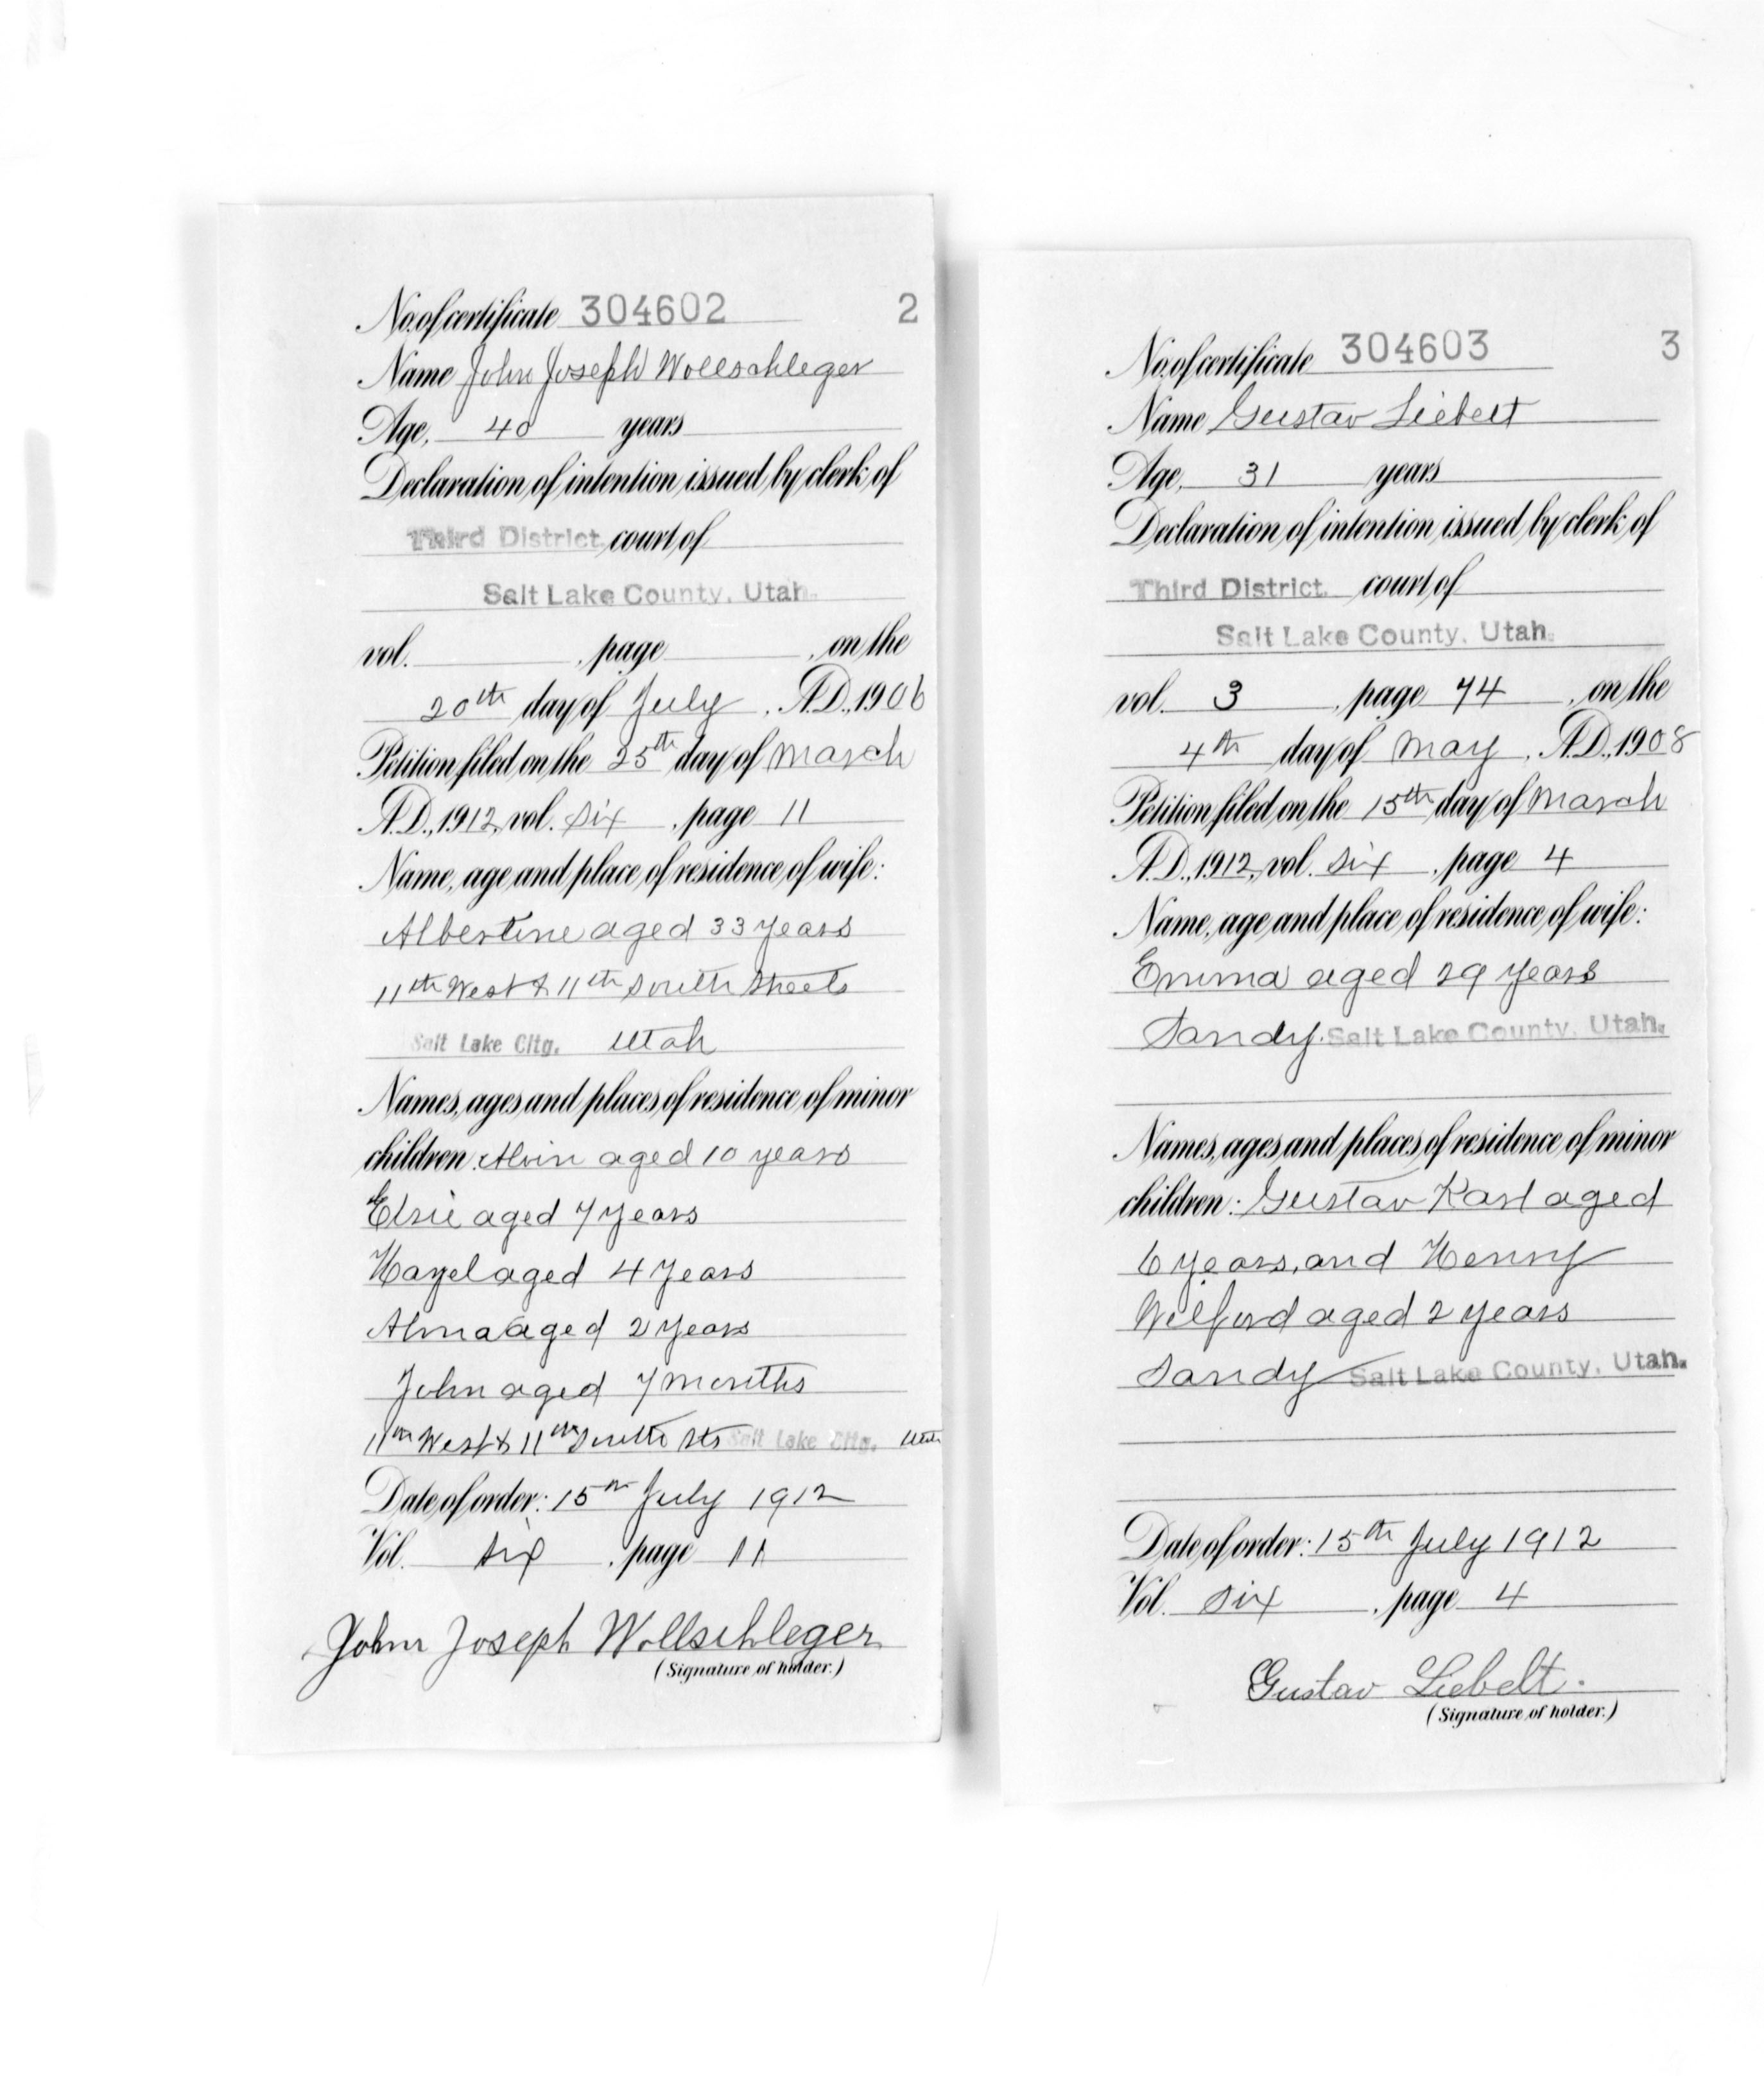 No. of certificate 304602 2
Name John Joseph Wollschleger
Age, 40 years
Declaration of intention issued by clerk of
Third District court of
Salt Lake County, Utah.
vol. , page , on the
20th day of July , A.D., 1906
Petition filed on the 25th day of March
A.D., 1912, vol. six , page 11
Name, age and place of residence of wife:
Albertine aged 33 years
11th West & 11th South Streets
Salt Lake City, Utah
Names, ages and places of residence of minor
children: Alvin aged 10 years
Elsie aged 7 years
Hazel aged 4 years
Alma aged 2 years
John aged 7 months
11th West & 11th South Sts Salt Lake City, Utah
Date of order: 15th July 1912
Vol. six , page 11
John Joseph Wollschleger
(Signature of holder.)
No. of certificate 304603 3
Name Gustav Liebelt
Age, 31 years
Declaration of intention issued by clerk of
Third District court of
Salt Lake County, Utah.
vol. 3 , page 74 , on the
4th day of May , A.D., 1908
Petition filed on the 15th day of March
A.D., 1912, vol. six , page 4
Name, age and place of residence of wife:
Emma aged 29 years
Sandy. Salt Lake County, Utah.
Names, ages and places of residence of minor
children: Gustav Karl aged
6 years, and Henry
Wilford aged 2 years
Sandy Salt Lake County, Utah.
Date of order: 15th July 1912
Vol. six , page 4
Gustav Liebelt.
(Signature of holder.)